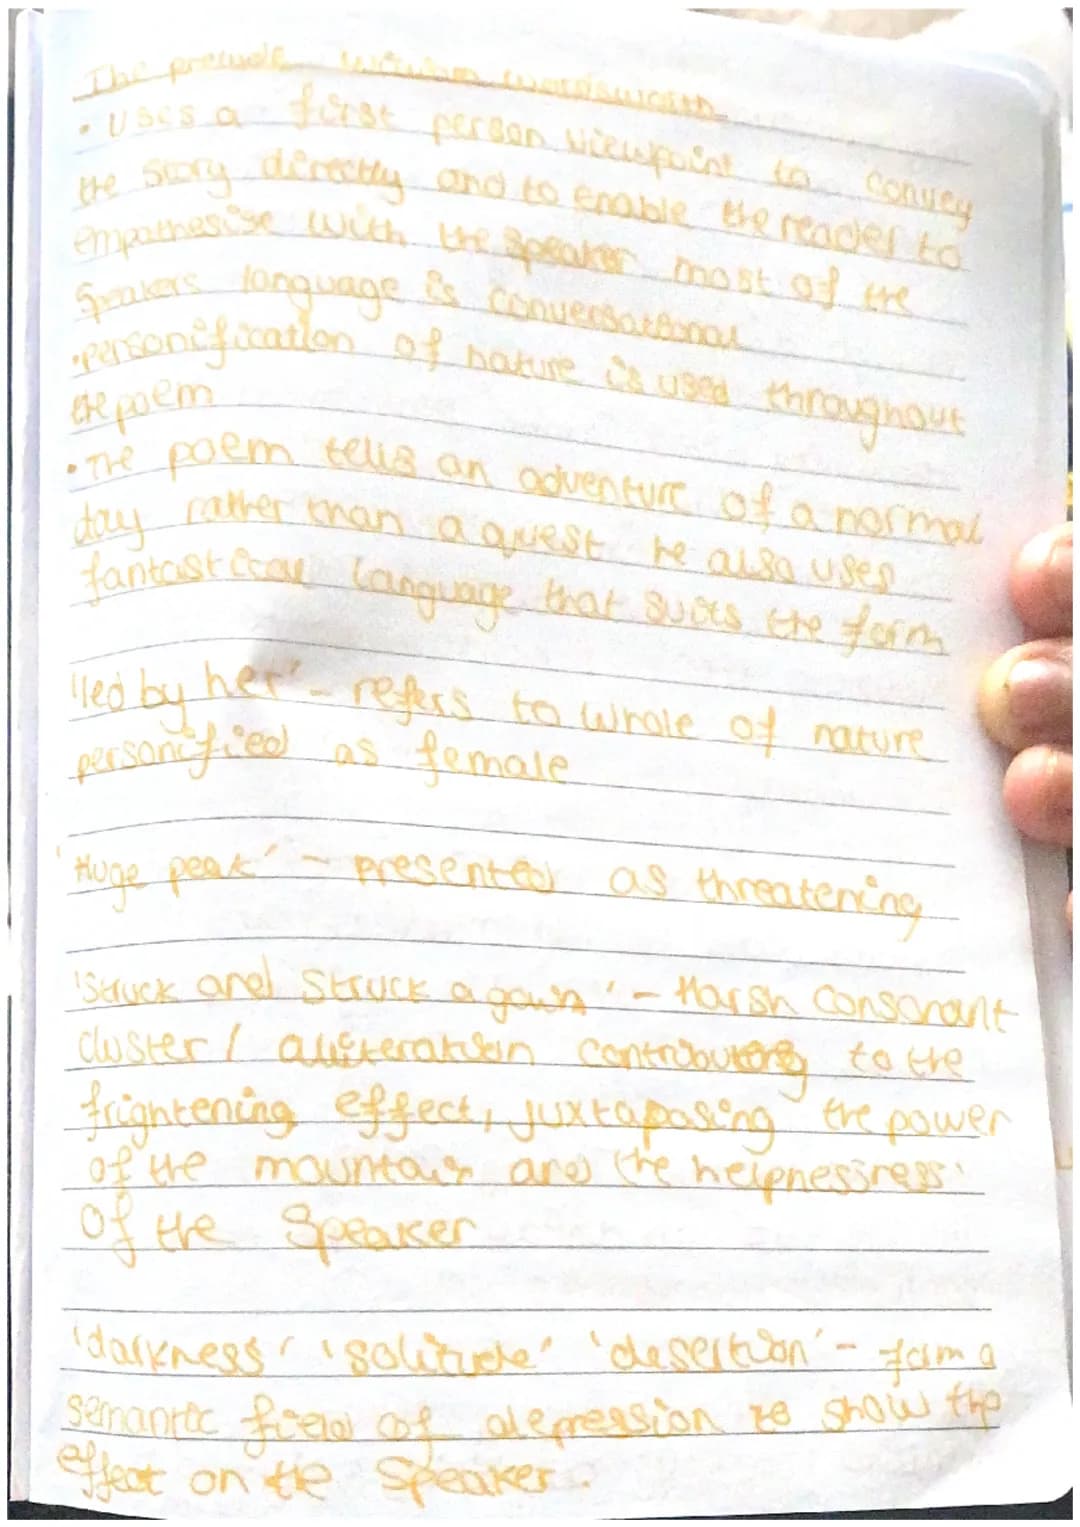 The prelude William wordsworth
• Uses a first person viewpoint to convey
the story directly and to enable the reader to
empathesise with the speaker most of the
Speakers language is conversational
• personification of nature is used throughout
the poem
• The poem tells an adventure of a normal
day rather than a quest he also uses
fantastical language that suits the form
'led by her' - refers to whole of nature
personified as female
'Huge peak' - presented as threatening
'Struck and Struck again' - Harsh Consonant
cluster / aliteration contributing to the
frightening effect, juxtaposing the power
of the mountain and the helpnessness
of the Speaker
'darkness' 'solitude' 'desertion' - form a
semantic field of depression to show the
effect on the Speaker.